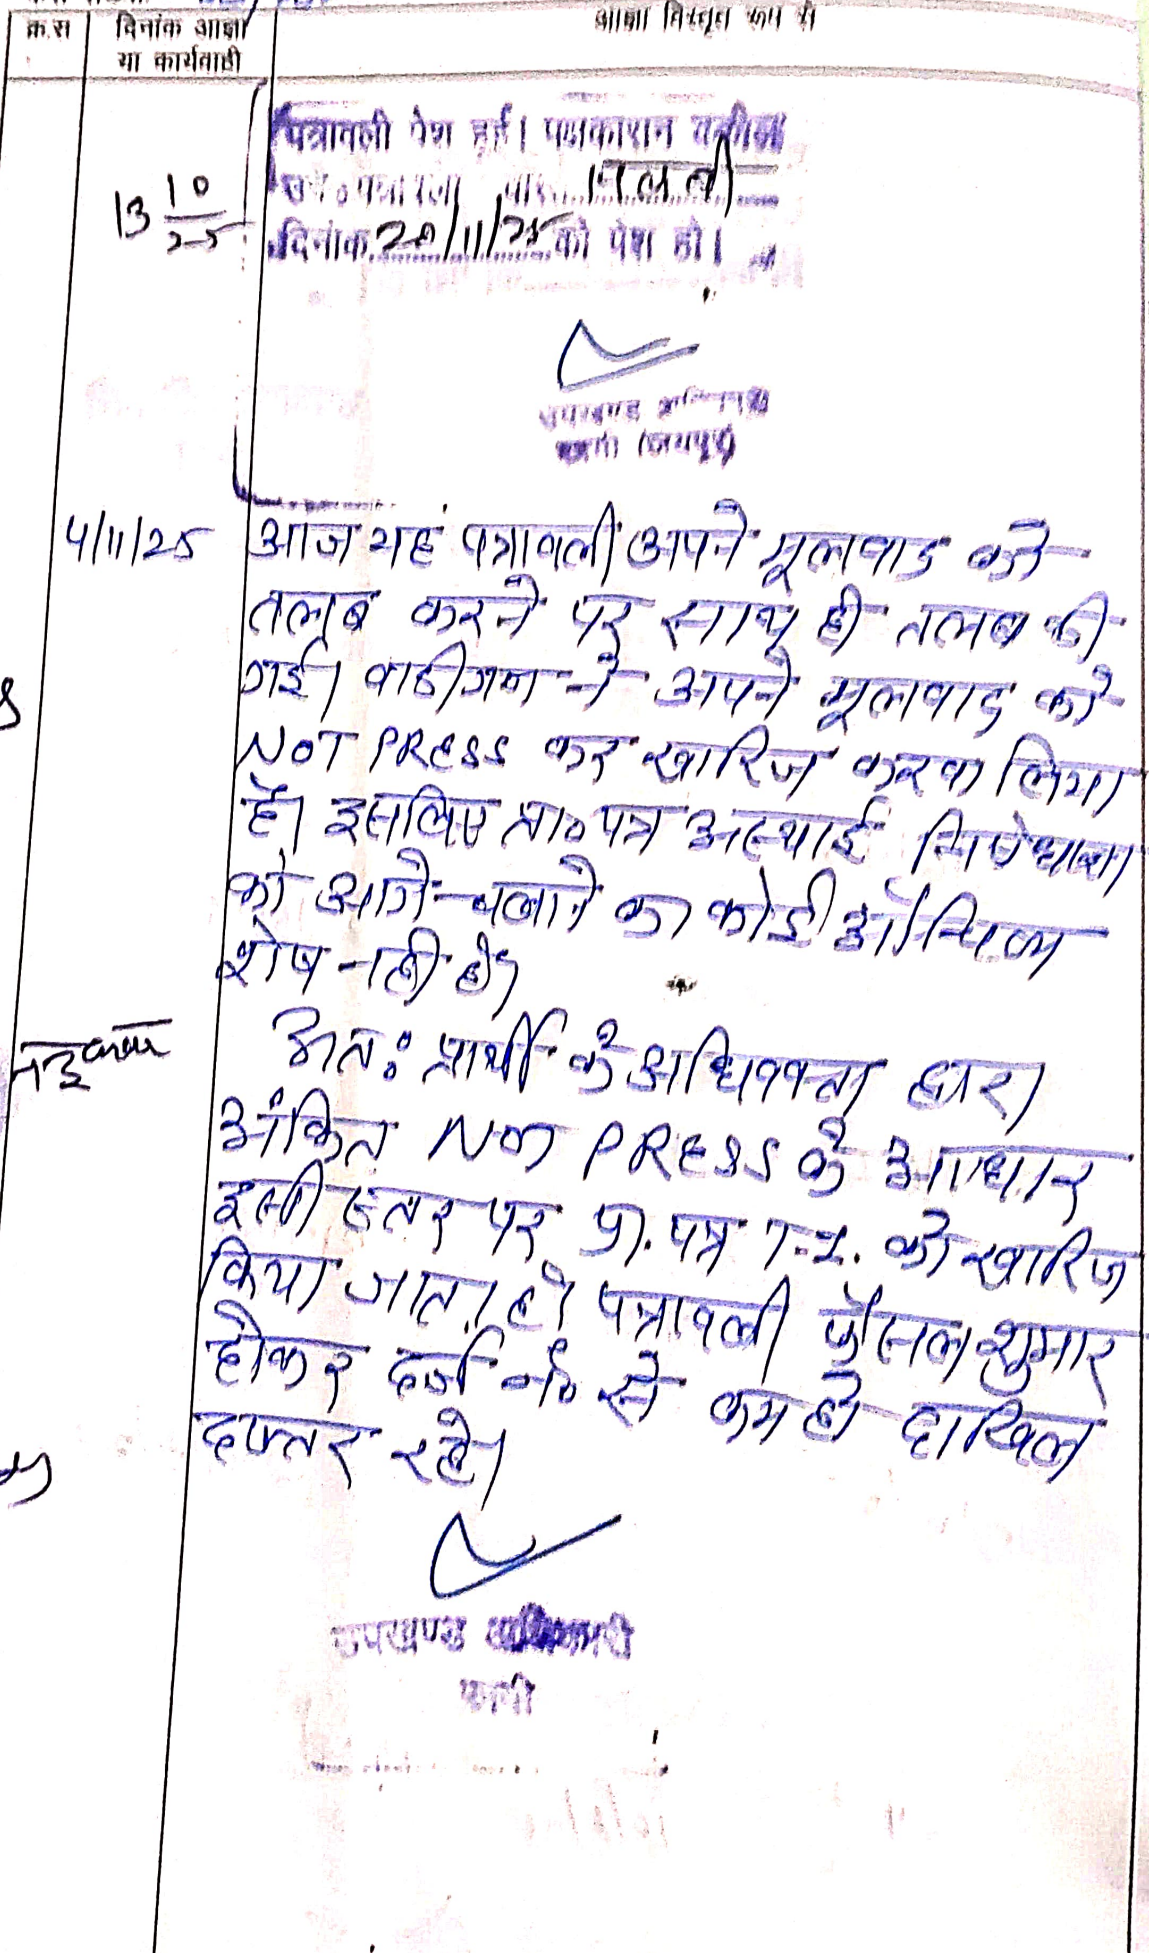 क्र.स दिनांक आज्ञा आज्ञा विस्तृत रूप से
या कार्यवाही
पत्रावली पेश हुई। पक्षकारान वकील
13 10/25
दिनांक 20/11/25 को पेश हो।
उपखण्ड
(जयपुर)
4/11/25 आज यह पत्रावली अपने मूलवाद को
तलब करने पर साथ ही तलब की
गई। वादीगण ने अपने मूलवाद को
NOT PRESS कर खारिज करवा लिया
है। इसलिए प्रा० पत्र अस्थाई निषेधाज्ञा
को आगे चलाने का कोई औचित्य
शेष नही है।
अतः प्रार्थी के अधिवक्ता द्वारा
अंकित NOT PRESS के आधार
इसी स्तर पर प्रा. पत्र T.I. को खारिज
किया जाता है। पत्रावली फैसल शुमार
होकर दर्ज नं० से कम हो दाखिल
दफ्तर रहे।
उपखण्ड अधिकारी
फागी